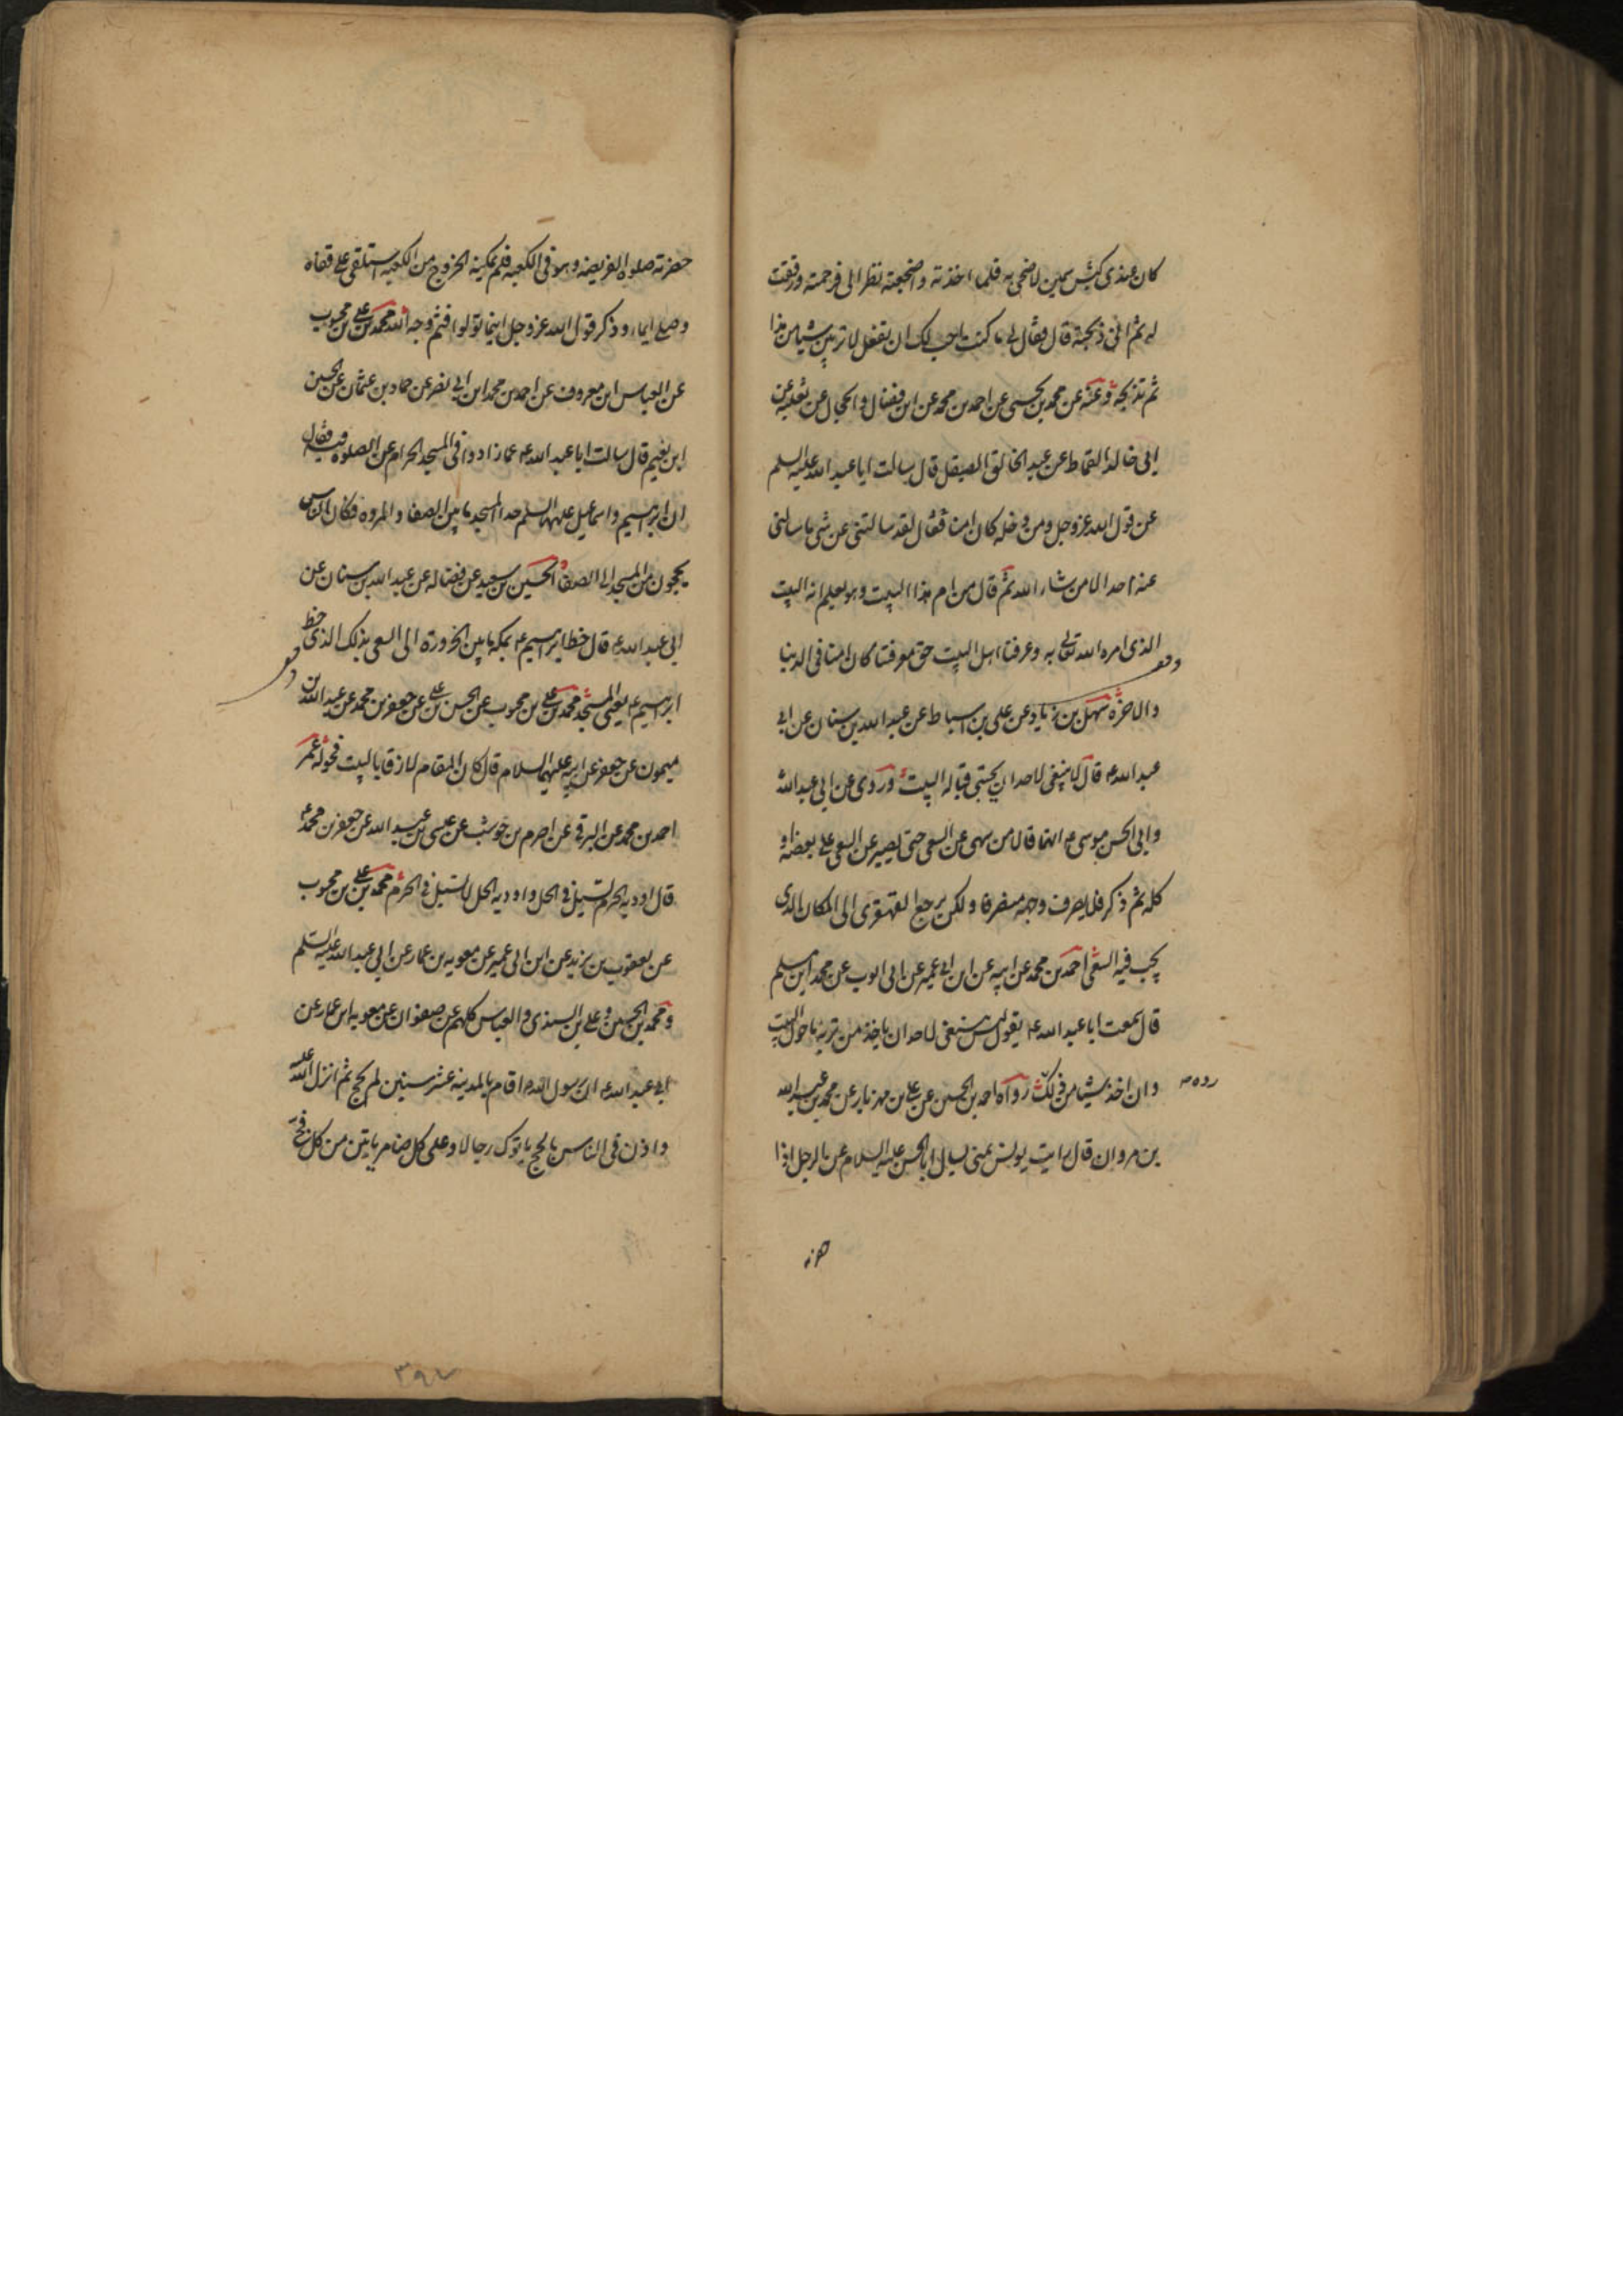 كان عندى كبش سمين لاضحى به فلما اخذته واضجعته نظر الى فرحمته ورققت
له ثم انى ذبحته قال فقال لى ما كنت احب لك ان تفعل لا تربين شيئا من هذا
ثم تذبحه وعنه عن محمد بن يحيى عن احمد بن محمد عن ابن فضال والحجال عن ثعلبه عن
ابى خالد القماط عن عبد الخالق الصيقل قال سالت ابا عبد الله عليه السلم
عن قول الله عز وجل ومن دخله كان امنا فقال لقد سالتنى عن شى ما سالنى
عنه احد الا من شاء الله ثم قال من ام هذا البيت وهو يعلم انه البيت
الذى امره الله تعالى به وعرفنا اهل البيت حق معرفتنا كان امنا فى الدنيا
والاخرة سهل بن زياد عن على بن اسباط عن عبد الله بن سنان عن ابى
عبد الله ع قال لا ينبغى لاحد ان يحتبى قباله البيت وروى عن ابى عبد الله
وابى الحسن موسى ع انهما قالا من سهى عن السعى حتى يصير عن السعى على بعضه او
كله ثم ذكر فلا يصرف وجهه منصرفا ولكن يرجع القهقرى الى المكان الذى
يجب فيه السعى احمد بن محمد عن ابيه عن ابن ابى عمير عن ابى ايوب عن محمد ابن مسلم
قال سمعت ابا عبد الله ع يقول ليس ينبغى لاحد ان ياخذ من تربه ما حول البيت
وان اخذ شيئا من ذلك رده رواه احمد بن الحسين عن على بن مهزيار عن محمد بن عبد الله
بن مروان قال رايت يونس بمنى يسال ابا الحسن عليه السلام عن الرجل اذا
حضرته صلوه الفريضه وهو فى الكعبه فلم يمكنه الخروج من الكعبه استلقى على قفاه
وصلى ايماء وذكر قول الله عز وجل اينما تولوا فثم وجه الله محمد بن على بن محبوب
عن العباس ابن معروف عن احمد بن محمد ابن ابى نصر عن حماد بن عثمان عن الحسين
ابن نعيم قال سالت ابا عبد الله ع عما زادوا فى المسجد الحرام عن الصلوه فيه فقال
ان ابراهيم واسماعيل عليهما السلم حدا المسجد ما بين الصفا والمروه فكان الناس
يحجون من المسجد الى الصفا الحسين بن سعيد عن فضاله عن عبد الله بن سنان عن
ابى عبد الله ع قال خط ابراهيم ع بمكه ما بين الحزورة الى السعى فذلك الذى خط
ابراهيم ع يعنى المسجد محمد بن على بن محبوب عن الحسن بن على عن جعفر بن محمد عن عبد الله بن
ميمون عن جعفر عن ابيه عليهما السلام قال كان المقام لازقا بالبيت فحوله عمر
احمد بن محمد عن البرقى عن احرم بن حوشب عن عيسى بن عبد الله عن جعفر بن محمد ع
قال اوديه الحرم تسيل فى الحل واوديه الحل لا تسيل فى الحرم محمد بن على بن محبوب
عن يعقوب بن يزيد عن ابن ابى عمير عن معويه بن عمار عن ابى عبد الله عليه السلم
ومحمد بن الحسين وعلى بن السندى والعباس كلهم عن صفوان عن معويه ابن عمار عن
ابى عبد الله ع ان رسول الله ص اقام بالمدينه عشر سنين لم يحج ثم انزل الله عليه
واذن فى الناس بالحج ياتوك رجالا وعلى كل ضامر ياتين من كل فج
٣٩٧